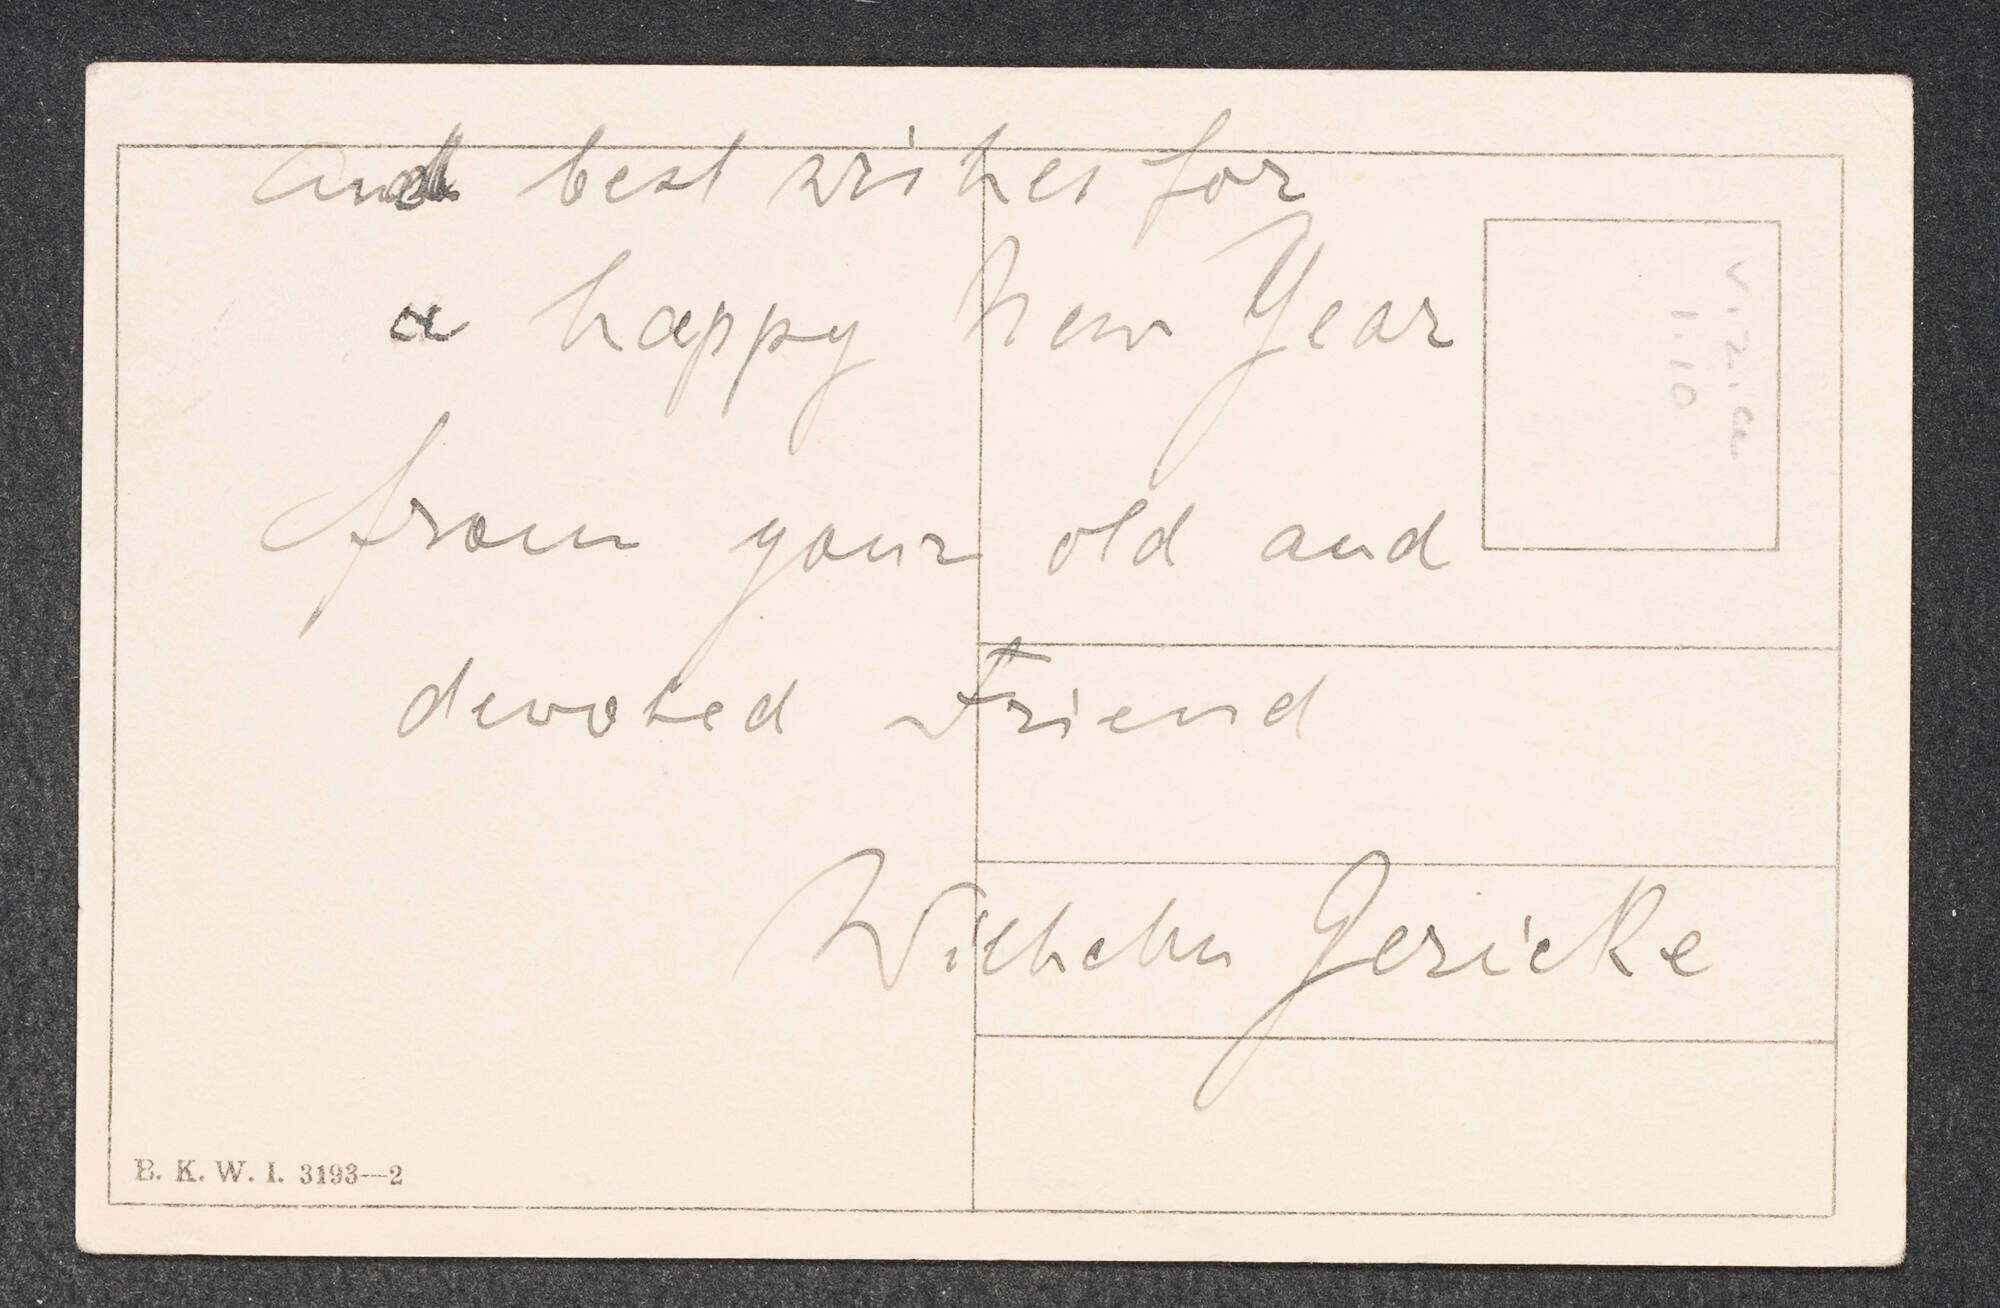 and best wishes for
a happy New Year
from your old and
devoted Friend
Wilhelm Gericke
B. K. W. I. 3193—2
1.10